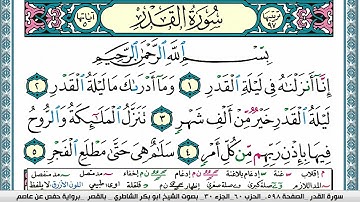 سُورَةُ الْقَدْرِ
بِسْمِ اللَّهِ الرَّحْمَٰنِ الرَّحِيمِ
إِنَّا أَنزَلْنَٰهُ فِي لَيْلَةِ الْقَدْرِ ١ وَمَا أَدْرَىٰكَ مَا لَيْلَةُ الْقَدْرِ ٢
لَيْلَةُ الْقَدْرِ خَيْرٌ مِّنْ أَلْفِ شَهْرٍ ٣ تَنَزَّلُ الْمَلَٰٓئِكَةُ وَالرُّوحُ
فِيهَا بِإِذْنِ رَبِّهِم مِّن كُلِّ أَمْرٍ ٤ سَلَٰمٌ هِيَ حَتَّىٰ مَطْلَعِ الْفَجْرِ ٥
سورة القدر الصفحة ٥٩٨ـ الحزب ٦٠ الجزء ٣٠ بصوت الشيخ أبو بكر الشاطري - القصر- برواية حفص عن عاصم